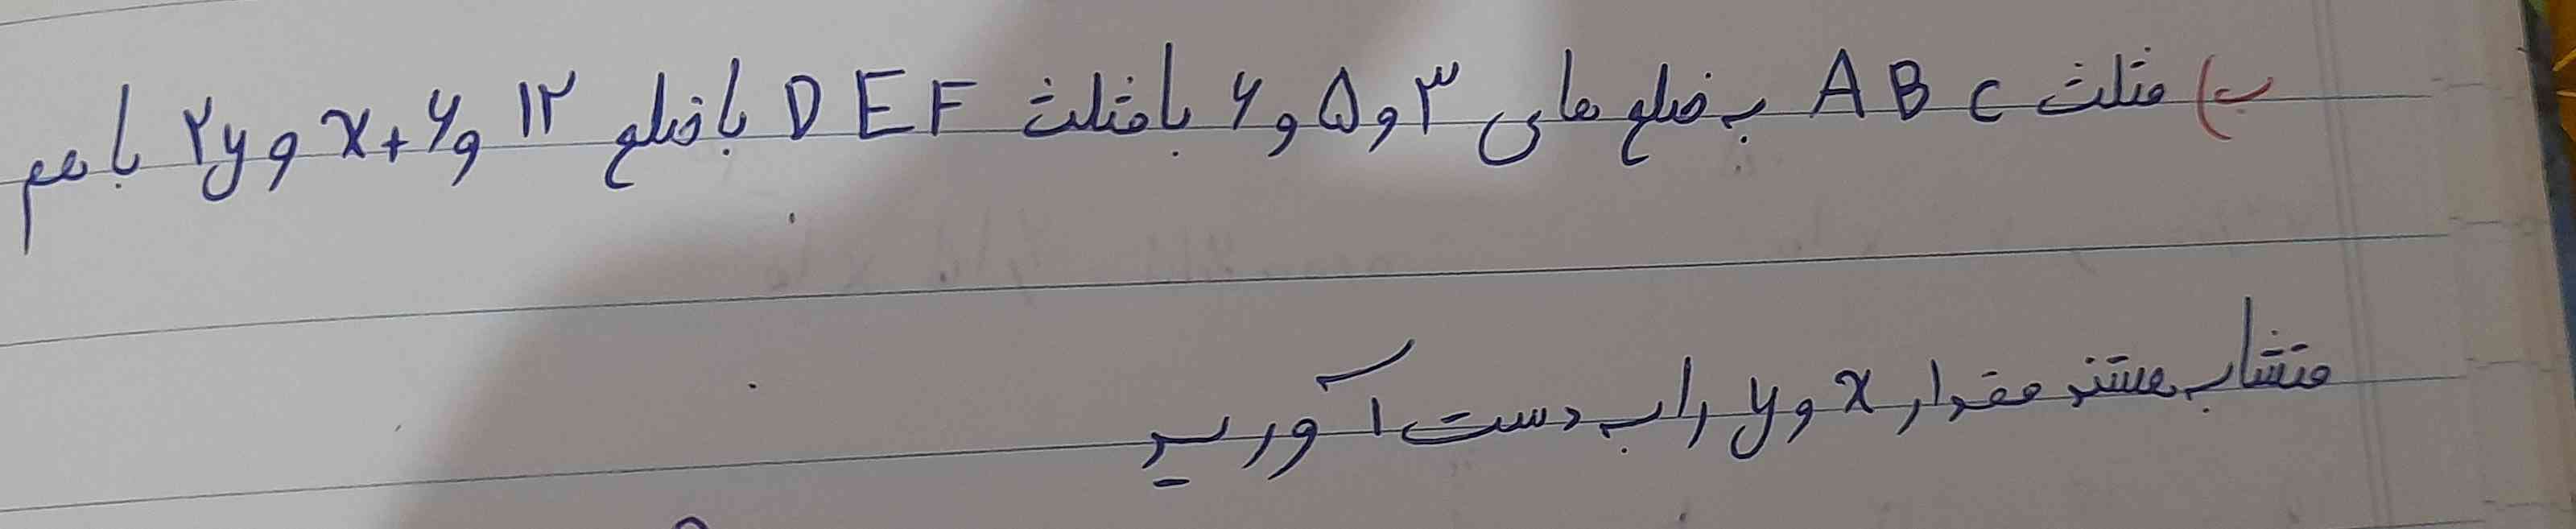 ب) مثلث ABC به ضلع های ۳ و ۵ و ۶ با مثلث DEF با ضلع ۱۲ و x+۶ و ۲y با هم
متشابه هستند مقدار x و y را به دست آورید